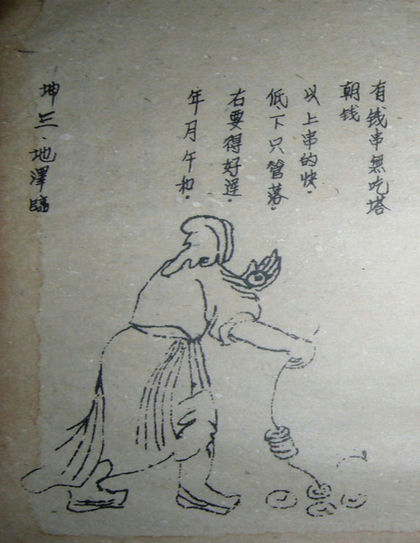 有钱串無吃塔
朝钱
以上串的快。
低下只管落。
右要得好運。
年月午和。
坤三、地澤臨